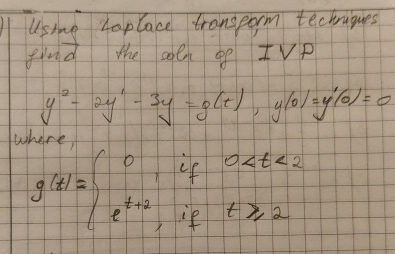 ) Using Laplace transform techniques
find the soln of IVP
y² - 2y' - 3y = g(t), y(0)=y'(0)=0
where,
g(t) = { 0, if 0<t<2
e^{t+2}, if t ≥ 2